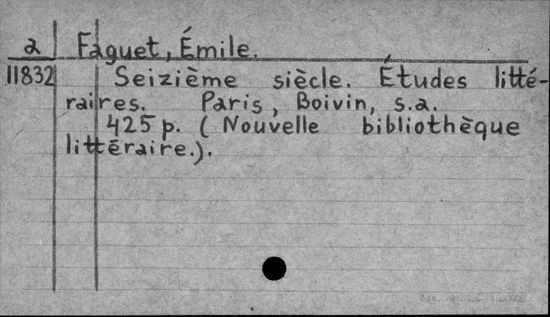 a Faguet, Émile.
11832 Seizième siècle. Études litté-
raires. Paris, Boivin, s.a.
425 p. (Nouvelle bibliothèque
littéraire.).